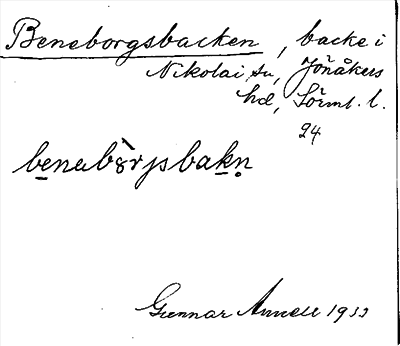 Beneborgsbacken, backe i
Nikolai sn, Jönåkers
hd, Sörml. l.
24
benabȯrjsbakn̥
Gunnar Annell 1933